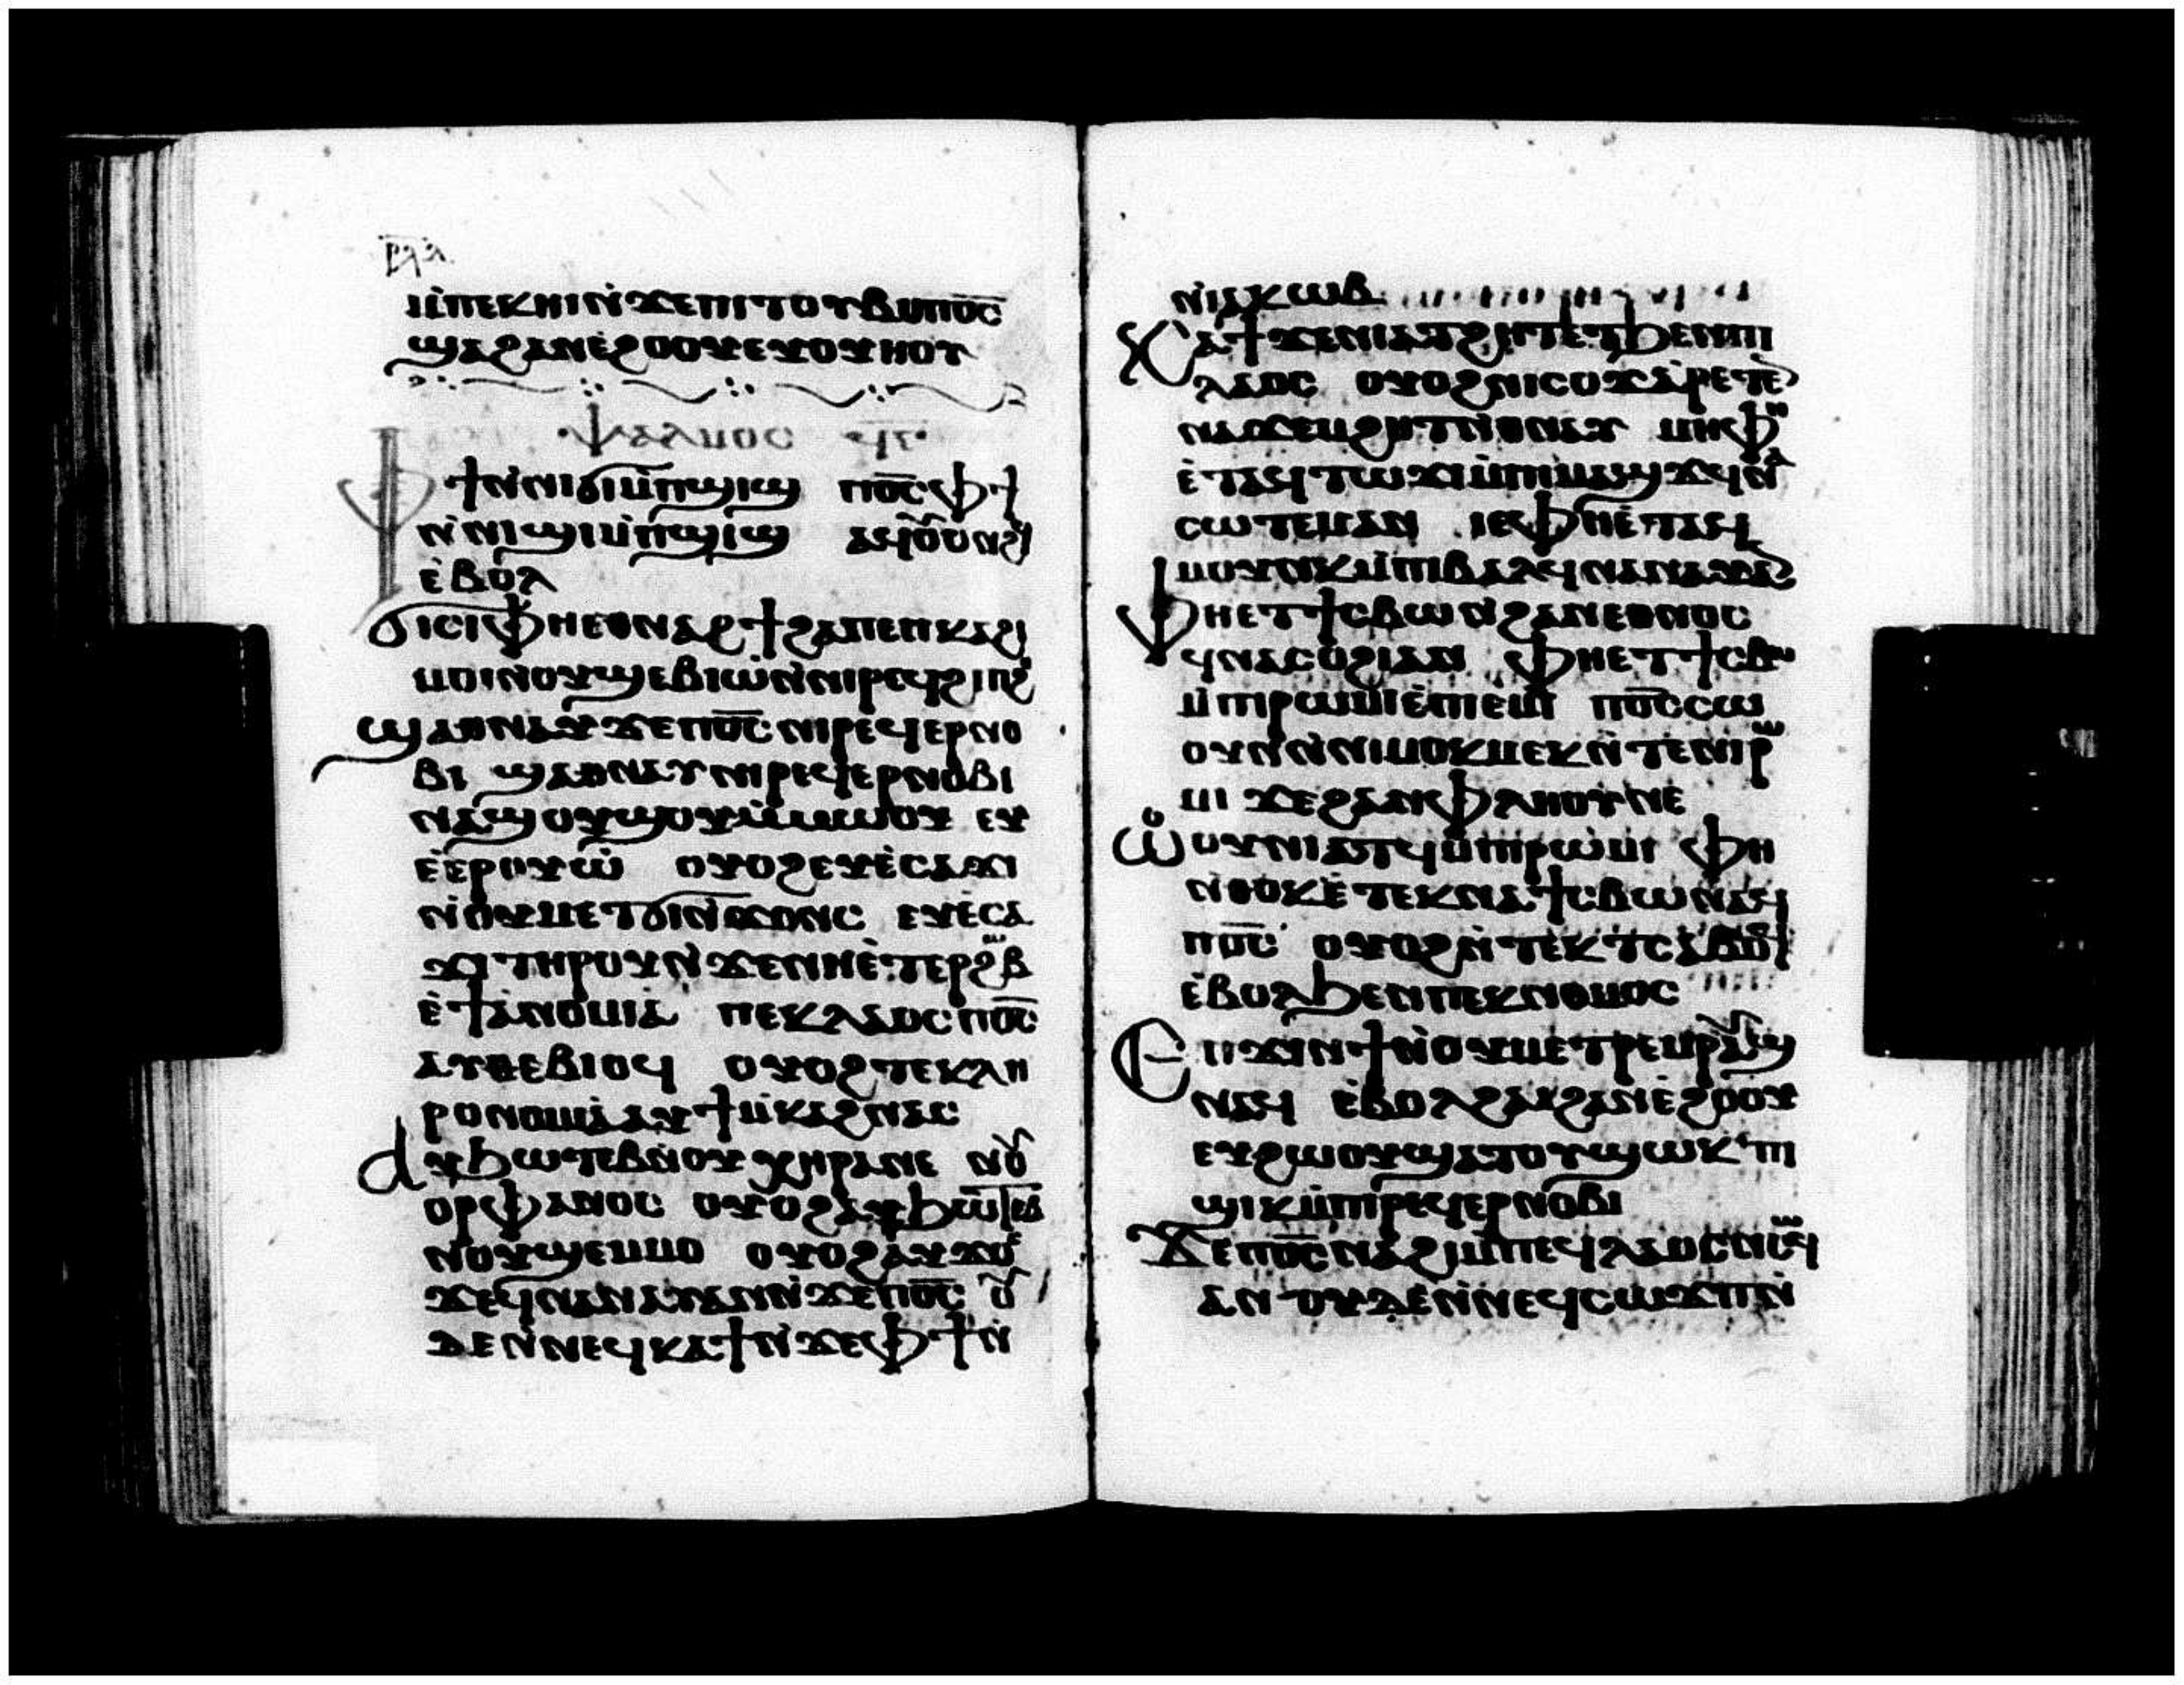 ⲣϥⲁ
ⲙ̀ⲡⲉⲕⲏⲓⲛ̀ϫⲉⲡⲓⲧⲟⲩⲃⲟⲡⲟ̅ⲥ̅
ϣⲁϩⲁⲛⲉ̀ϩⲟⲟⲩⲉⲩⲟⲩⲏⲟⲩ
ⲯⲁⲗⲙⲟⲥ ϥⲅ
ⲫϯⲛ̀ⲛⲓϭⲓⲙ̀ⲡϣⲓϣ ⲡⲟ̅ⲥ̅ⲫϯ
ⲛ̀ⲛⲓϭⲓⲙ̀ⲡϣⲓϣ ⲁϥⲟⲩⲟⲛϩϥ
ⲉ̀ⲃⲟⲗ
ϭⲓⲥⲓⲫⲏⲉⲑⲛⲁϩϯϩⲁⲡⲉⲡⲕⲁϩⲓ
ⲙⲟⲓⲛⲟⲩϣⲉⲃⲓⲱ̀ⲛ̀ⲛⲓⲣⲉϥϩⲓⲡϩ
ϣⲁⲑⲛⲁⲩϫⲉⲡⲟ̅ⲥ̅ⲛⲓⲣⲉϥⲉⲣⲛⲟ
ⲃⲓ ϣⲁⲑⲛⲁⲩⲛⲓⲣⲉϥⲉⲣⲛⲟⲃⲓ
ⲛⲁϣⲟⲩϣⲟⲩⲙ̀ⲙⲱⲟⲩ ⲉⲩ
ⲉ̀ⲉⲣⲟⲩⲱ̀ ⲟⲩⲟϩⲉⲩⲉ̀ⲥⲁϫⲓ
ⲛ̀ⲟⲩⲙⲉⲧϭⲓⲛ̀ϫⲟⲛⲥ ⲉⲩⲉ̀ⲥⲁ
ϫⲓⲧⲏⲣⲟⲩⲛ̀ϫⲉⲛⲏⲉ̀ⲧⲉⲣϩⲱⲃ
ⲉ̀ϯⲁ̀ⲛⲟⲙⲓⲁ ⲡⲉⲕⲗⲁⲟⲥⲡⲟ̅ⲥ̅
ⲁⲩⲑⲉⲃⲓⲟϥ ⲟⲩⲟϩⲧⲉⲕⲕⲗⲏ
ⲣⲟⲛⲟⲙⲓⲁ̀ⲁⲩϯⲙ̀ⲕⲁϩⲛⲁⲥ
ⲁⲩϧⲱⲧⲉⲃⲛ̀ⲟⲩⲭⲏⲣⲁⲛⲉ ⲛⲟⲩ
ⲟⲣⲫⲁⲛⲟⲥ ⲟⲩⲟϩⲁⲩϧⲱⲧⲉⲃ
ⲛⲟⲩϣⲉⲙⲙⲟ ⲟⲩⲟϩⲁⲩϫⲟⲥ
ϫⲉϥⲛⲁⲛⲁⲩⲁⲛⲛ̀ϫⲉⲡⲟ̅ⲥ̅ ⲟⲩ
ⲇⲉⲛ̀ⲛⲉϥⲕⲁϯⲛ̀ϫⲉⲫϯⲛ̀
ⲛ̀ⲓⲁⲕⲱⲃ
ⲕⲁϯϫⲉⲛⲓⲁⲧϩⲏⲧⲉⲧϧⲉⲛⲡⲓ
ⲗⲁⲟⲥ ⲟⲩⲟϩⲛⲓⲥⲟϫⲁ̀ⲣⲉⲧⲉ
ⲛⲁϫⲉⲙϩⲏⲧⲛ̀ⲑⲛⲁⲩ ⲙⲏⲫⲏ
ⲉ̀ⲧⲁϥⲧⲱϫⲓⲙ̀ⲡⲓⲙⲁϣϫϥⲛⲁ
ⲥⲱⲧⲉⲙⲁⲛ ⲓⲉⲫⲏⲉ̀ⲧⲁϥ
ⲙⲟⲩⲛⲕⲙ̀ⲡⲓⲃⲁⲗϥⲛⲁⲛⲁⲩⲁⲛ
ⲫⲏⲉⲧϯⲥⲃⲱⲛ̀ϩⲁⲛⲉⲑⲛⲟⲥ
ϥⲛⲁⲥⲟϩⲓⲁⲛ ⲫⲏⲉⲧϯⲥⲃⲱ
ⲙ̀ⲡⲓⲣⲱⲙⲓⲉ̀ⲡⲓⲉ̀ⲙⲓ ⲡⲟ̅ⲥ̅ⲥⲱ
ⲟⲩⲛⲛ̀ⲛⲓⲙⲟⲕⲙⲉⲕⲛ̀ⲧⲉⲛⲓⲣⲱ
ⲙⲓ ϫⲉϩⲁⲛⲉⲫⲗⲏⲟⲩⲛⲉ
ⲱ̀ⲟⲩⲛⲓⲁⲧϥⲙ̀ⲡⲓⲣⲱⲙⲓ ⲫⲏ
ⲛ̀ⲑⲟⲕⲉ̀ⲧⲉⲕⲛⲁϯⲥⲃⲱⲛⲁϥ
ⲡⲟ̅ⲥ̅ ⲟⲩⲟϩⲛ̀ⲧⲉⲕⲧⲥⲁⲃⲟϥ
ⲉ̀ⲃⲟⲗϧⲉⲛⲡⲉⲕⲛⲟⲙⲟⲥ
ⲉⲡϫⲓⲛϯⲛ̀ⲟⲩⲙⲉⲧⲣⲉⲙⲣⲁⲩϣ
ⲛⲁϥ ⲉ̀ⲃⲟⲗϩⲁϩⲁⲛⲉ̀ϩⲟⲟⲩ
ⲉⲩϩⲱⲟⲩϣⲁⲧⲟⲩϣⲱⲕ ⲡⲓ
ϣⲓⲕⲙ̀ⲡⲓⲣⲉϥⲉⲣⲛⲟⲃⲓ
ϫⲉⲡⲟ̅ⲥ̅ⲛⲁϩⲓⲙ̀ⲡⲉϥⲗⲁⲟⲥⲛⲥⲱϥ
ⲁⲛ ⲟⲩⲇⲉⲛ̀ⲛⲉϥⲥⲱϫⲡⲛ̀